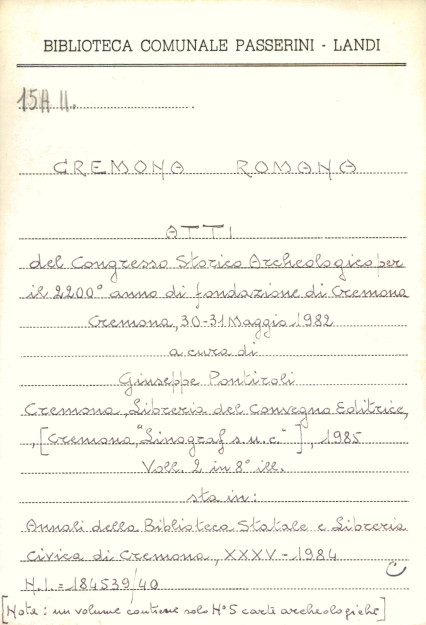 BIBLIOTECA COMUNALE PASSERINI - LANDI
15A II.
CREMONA ROMANA
ATTI
del Congresso Storico Archeologico per
il 2200° anno di fondazione di Cremona
Cremona, 30-31 Maggio 1982
a cura di
Giuseppe Pontiroli
Cremona, Libreria del Convegno Editrice,
, [Cremona, "Linograf s.n.c." ], 1985
Voll. 2 in 8° ill.
sta in:
Annali della Biblioteca Statale e Libreria
Civica di Cremona, XXXV - 1984
N.I. = 184539/40
[Nota: un volume contiene solo N° 5 carte archeologiche]